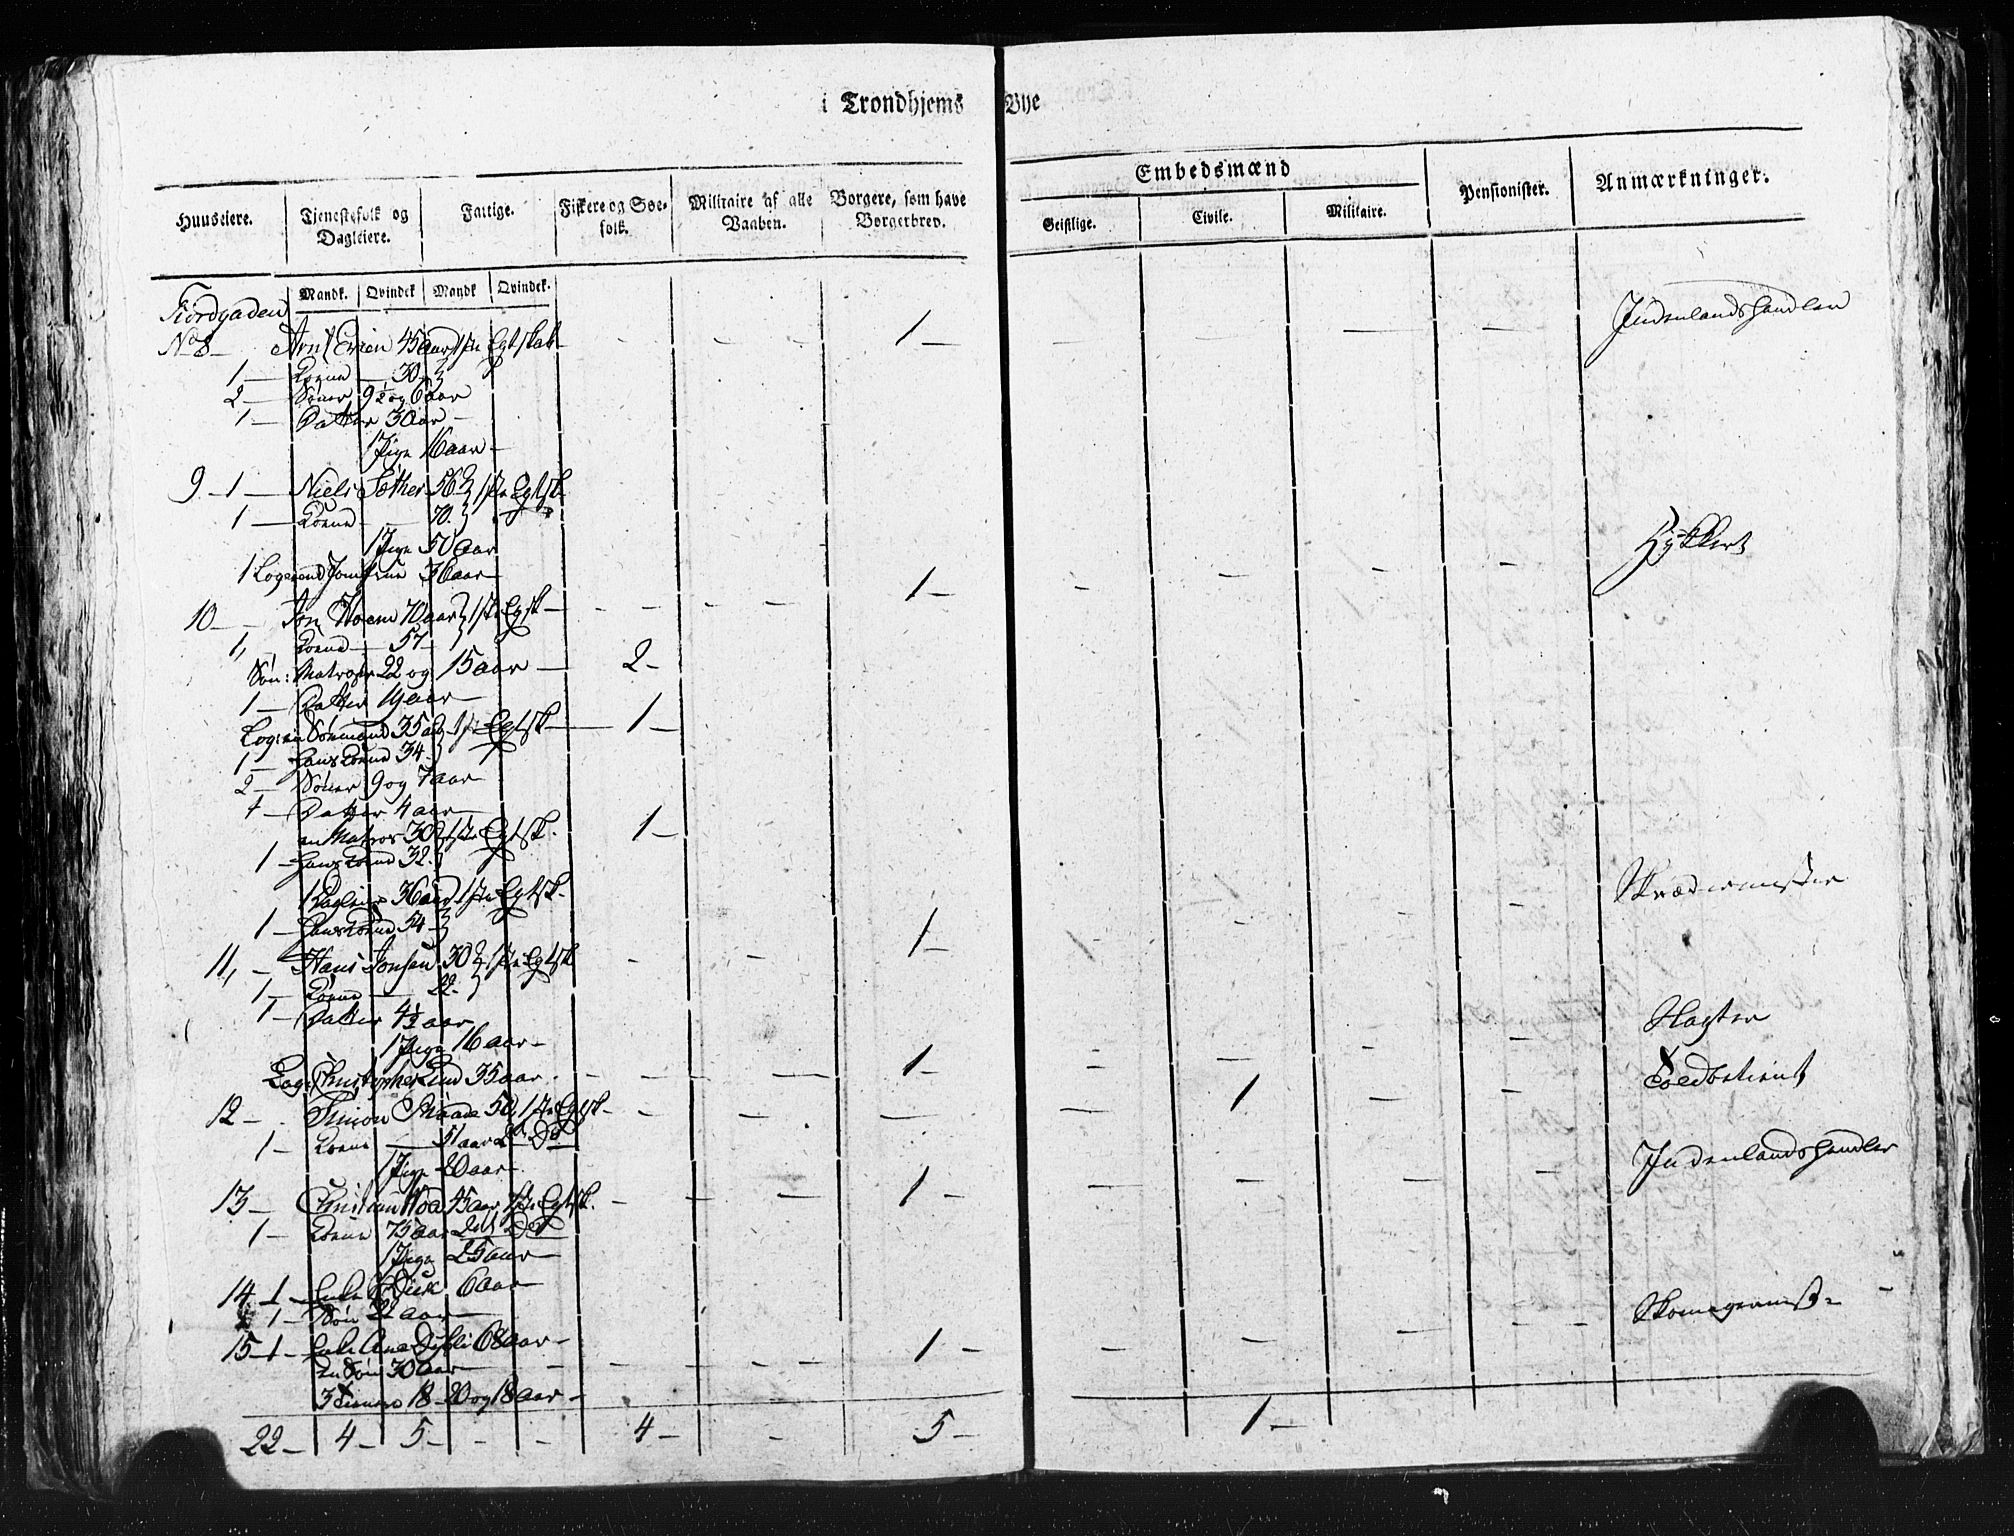 i Trondhjems Bye
Huuseiere. Tjenestefolk og Dagleiere. Fattige. Fiskere og Søefolk. Militaire af alle Vaaben. Borgere, som have Borgerbrev. Embedsmænd Pensionister. Anmærkninger.
Geistlige. Civile. Militaire.
Mandk. Qvindek Mandk Qvindek.
Fiordgaden
No 8 — Arnt 45 aar 1ste Egtskab — 1 — Indenlandshandler
1 — Kone — 30
2 — Sóner 9½ og 6 aar
1 — Datter 3 aar —
1 Pige 16 aar —
9 — 1 — Niels Sæther 56 1ste Egtsk.
1 — Kone — 70.
1 Pige 50 aar
1 Logerend Jomfrue 36 aar —
10 — Jon Hoem 70 aar 1ste Egtsk — 1 —
1, — Kone — 57 —
Søn: Matroser 22 og 15 aar — 2 —
1 — Datter 19 aar —
Loger: Sömand 35 1ste Egtsk — 1 —
1 — Hans Kone 34.
2 — Sóner 9 og 7 aar
1 — Datter 4 aar —
en Matros 30 1ste Egtsk. 1 —
1 — Hans Kone 32.
1 Dagleier 36 aar 1ste Egtsk.
1 — Hans Kone 54 —
11, — Hans Jonsen 30 1ste Egtsk — 1 — Skrædermester
1 — Kone — 22.
1 — Datter 4½ aar
1 Pige 16 aar —
Loge: Christopher Lind 35 aar. 1 — Slagter
12 — Simon 50, 1ste Egtsk — 1 — Toldbetient
1 — Kone — 51 aar 2d Do
1 Pige 20 aar —
13 — Christian 45 aar 1ste Egtsk. 1 — Indenlandshandler
1 — Kone 75 aar 2det Do
1 Pige 25 aar —
14 — 1 — Enke 6 aar —
1 — Søn 22 aar —
15 — 1 — Enke Ane 68 aar —
En Søn 30 aar — 1 — Skomagermest.
3 Tienere 18 — 20 og 18 aar —
22 — 4 — 5 — — — 4 — — 5 — 1 —